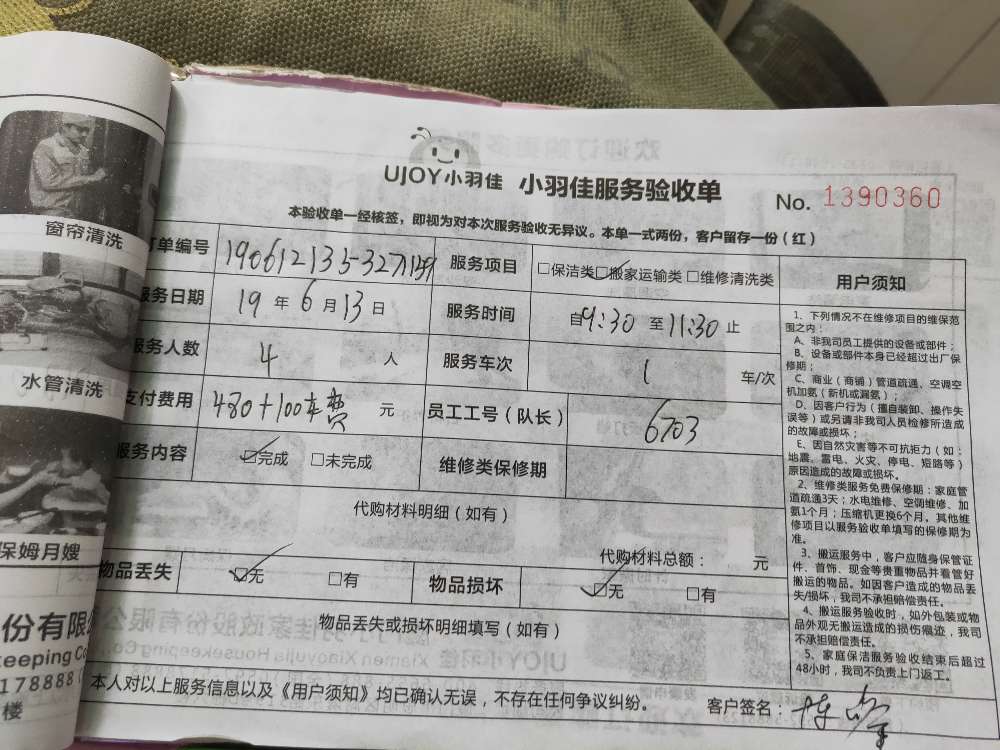 窗帘清洗
水管清洗
保姆月嫂
份有限
178888
楼
UJOY小羽佳 小羽佳服务验收单
No. 1390360
本验收单一经核签，即视为对本次服务验收无异议。本单一式两份，客户留存一份（红）
订单编号
服务项目 □保洁类 ☑搬家运输类 □维修清洗类
用户须知
服务日期 19 年 6 月 13 日
服务时间 自 9:30 至 11:30 止
服务人数 4 人
服务车次 1 车/次
支付费用 480+100车费 元
员工工号（队长） 6703
服务内容 ☑完成 □未完成
维修类保修期
代购材料明细（如有）
代购材料总额： 元
物品丢失 ☑无 □有
物品损坏 ☑无 □有
物品丢失或损坏明细填写（如有）
本人对以上服务信息以及《用户须知》均已确认无误，不存在任何争议纠纷。
客户签名：
1、下列情况不在维修项目的维保范
围之内：
A、非我司员工提供的设备或部件；
B、设备或部件本身已经超过出厂保
修期；
C、商业（商铺）管道疏通、空调空
机加氨（新机或漏氨）；
D、因客户行为（擅自装卸、操作失
误等）或另请非我司人员检修所造成
的故障或损坏；
E、因自然灾害等不可抗拒力（如：
地震、雷电、火灾、停电、短路等）
原因造成的故障或损坏。
2、维修类服务免费保修期：家庭管
道疏通3天；水电维修、空调维修、加
氨1个月；压缩机更换6个月。其他维
修项目以服务验收单填写的保修期为
准。
3、搬运服务中，客户应随身保管证
件、首饰、现金等贵重物品并看管好
搬运的物品。如因客户造成的物品丢
失/损坏，我司不承担赔偿责任。
4、搬运服务验收时，如外包装或物
品外观无搬运造成的损伤痕迹，我司
不承担赔偿责任。
5、家庭保洁服务验收结束后超过
48小时，我司不负责上门返工。